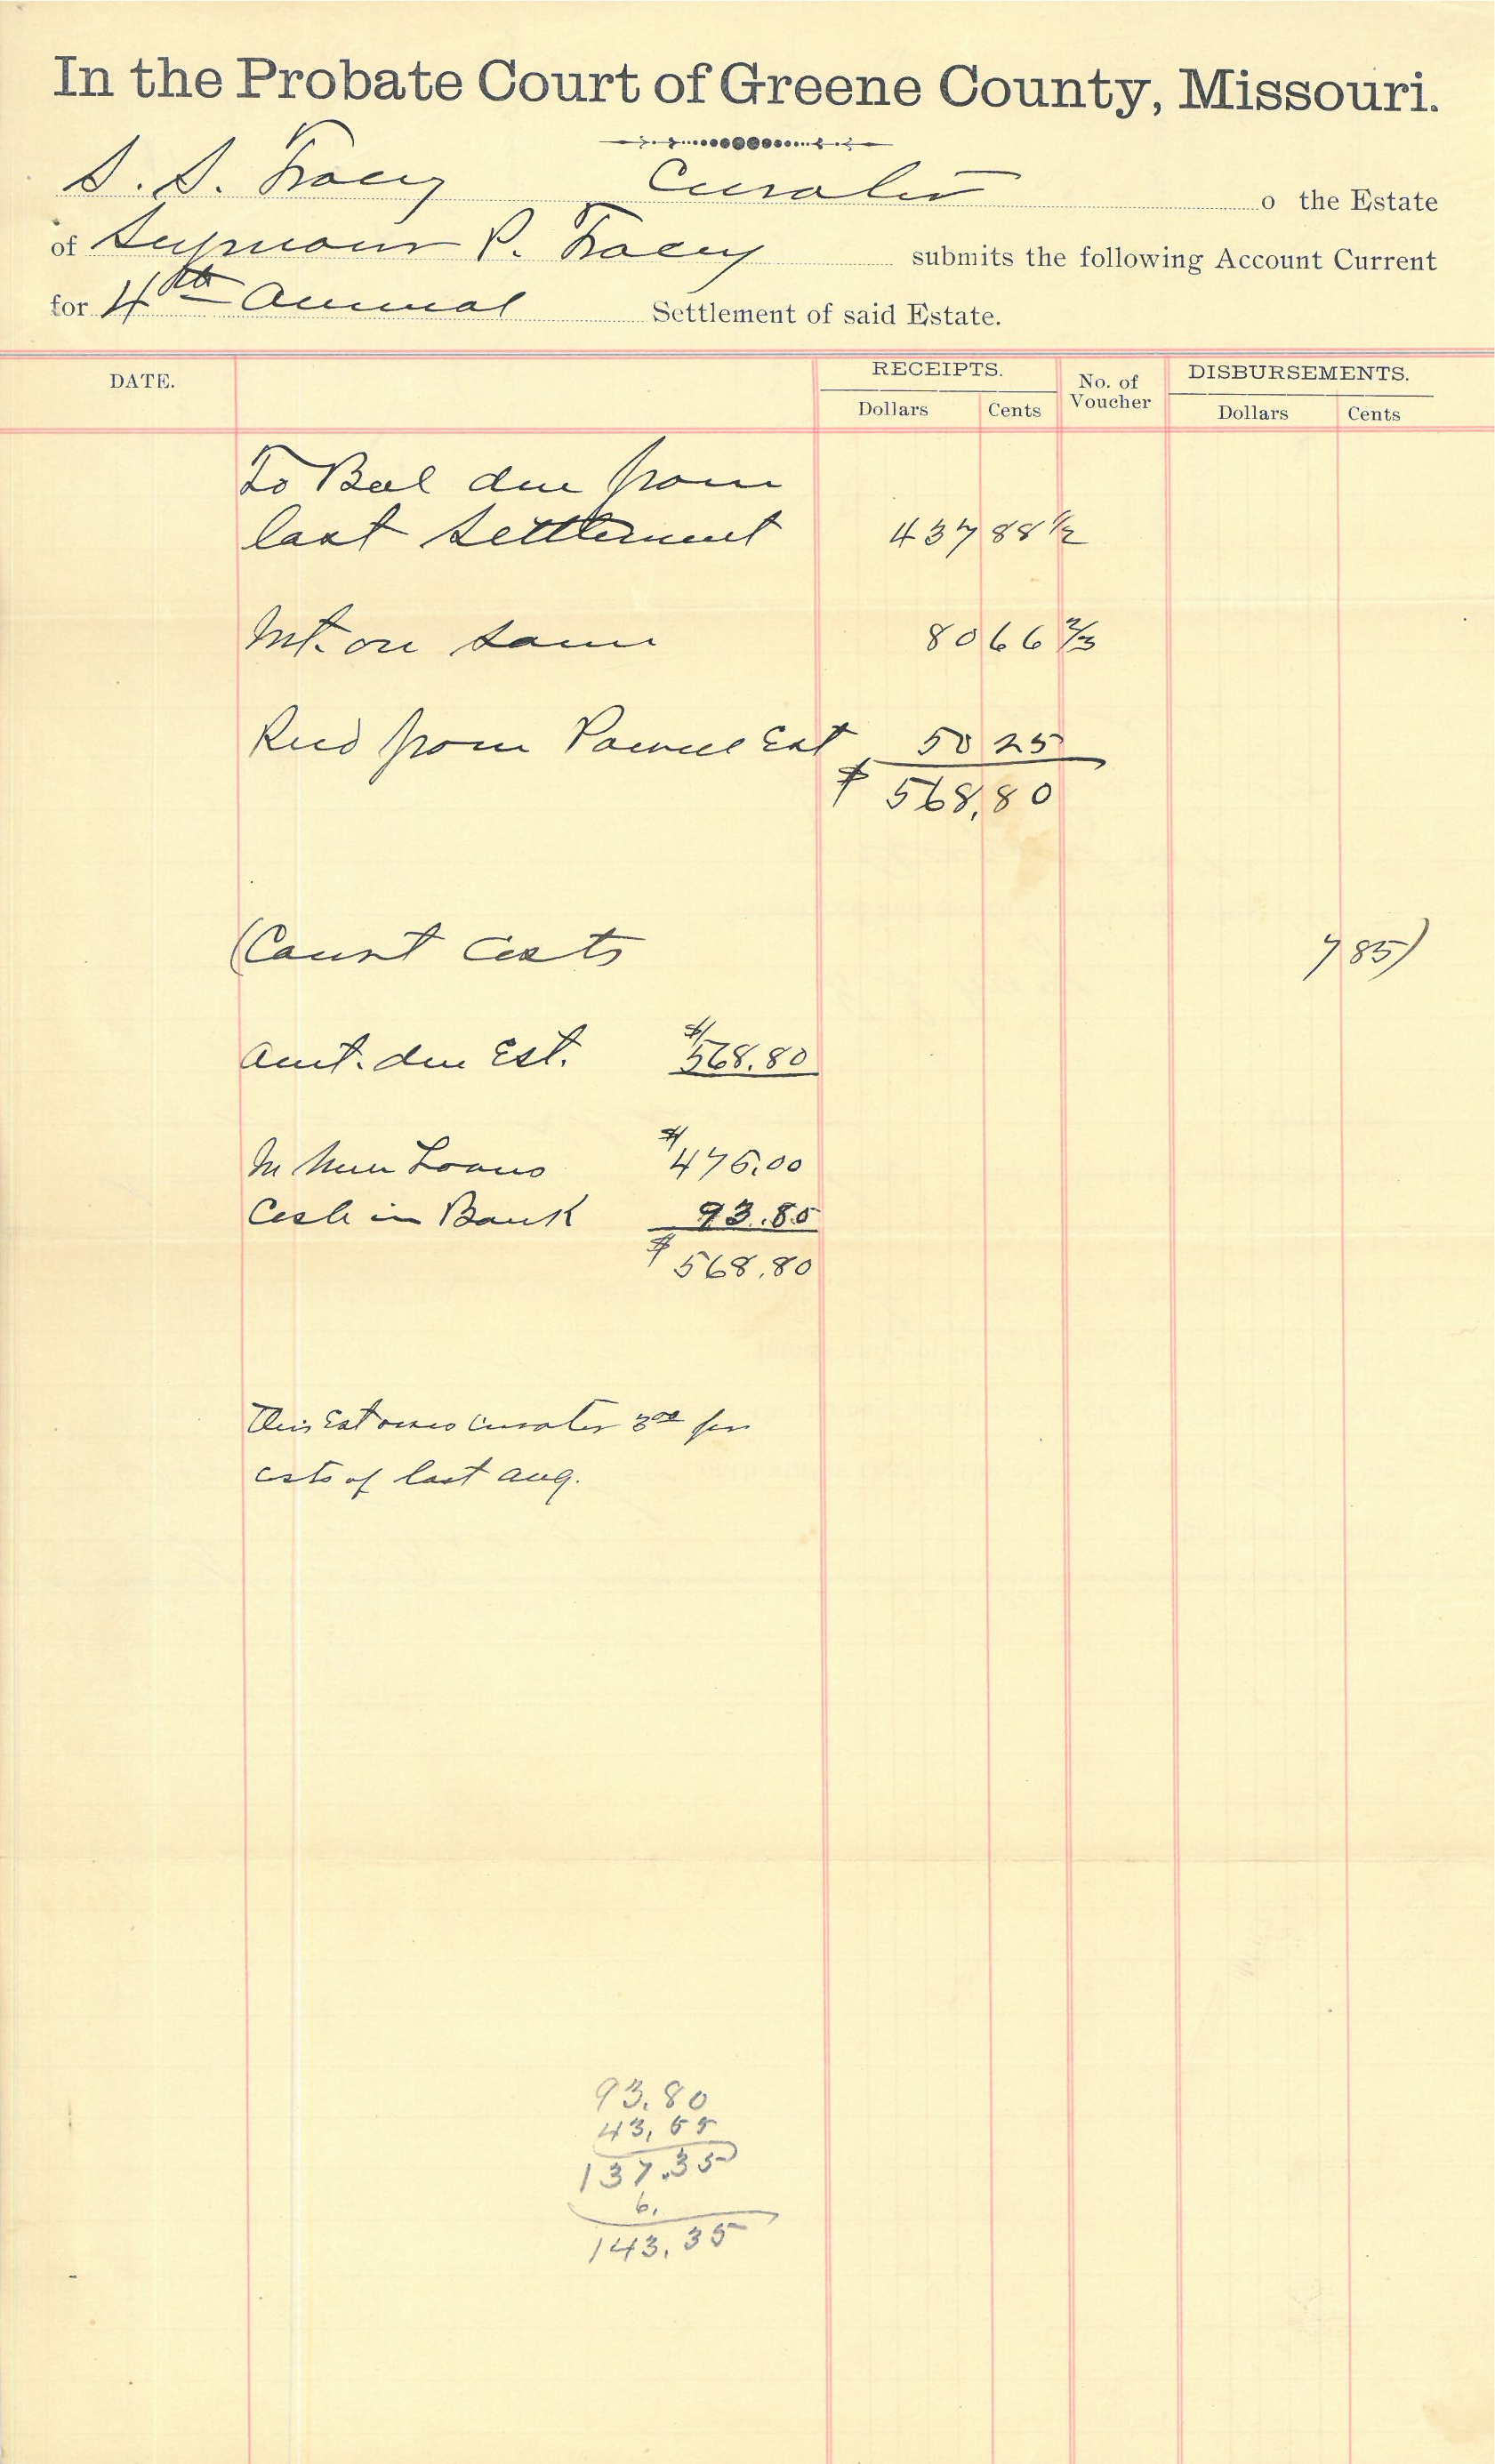 In the Probate Court of Greene County, Missouri.
S. S. Tracy Curator o the Estate
of Seymour P. Tracy submits the following Account Current
for 4th Annual Settlement of said Estate.
DATE. RECEIPTS. No. of Voucher DISBURSEMENTS.
Dollars Cents Dollars Cents
To Bal due from
last settlement 437 88 1/2
Int. on same 80 66 2/3
Recd from Powell Est 50 25
$ 568.80
(Court Costs 7 85)
Amt. due Est. $568.80
In Loans $475.00
Cash in Bank 93.80
$568.80
This Est owes curator 3.00 for
costs of last Aug.
93.80
43.55
137.35
6.
143.35